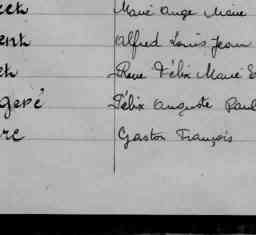 Marie Ange Marie
ent Alfred Louis Jean
René Félix Marie
geré Félix Auguste Paul
rc Gaston François